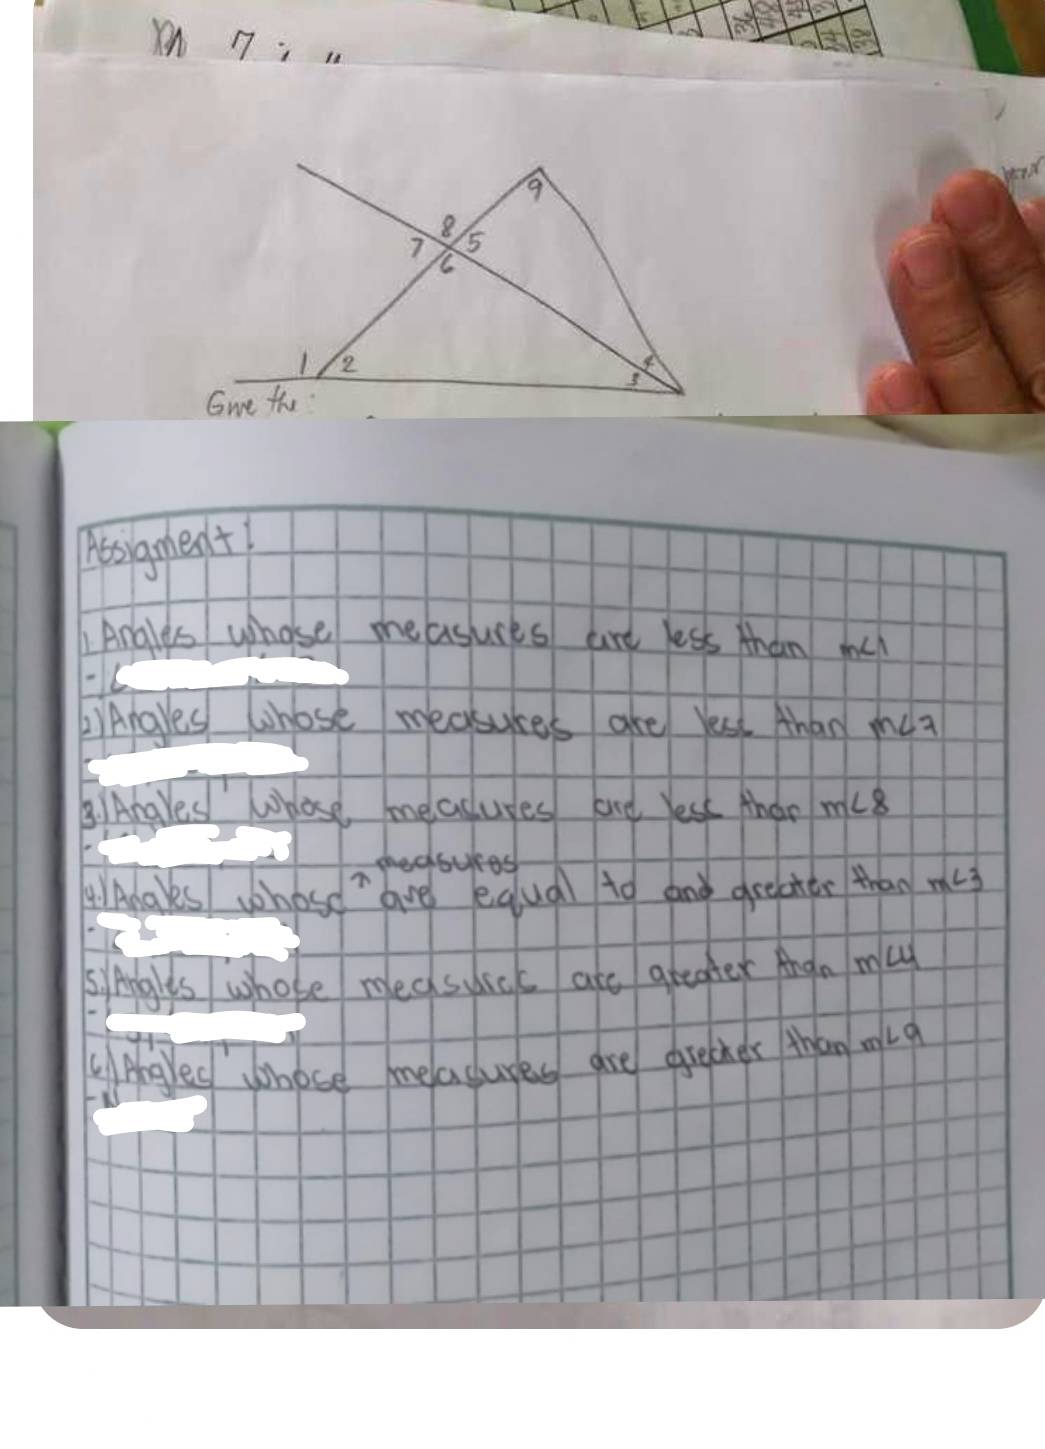 7
36
38
9
8
7 5
6
1 2
4
3
Give the :
Assigment:
1. Angles whose measures are less than m<1
2.) Angles whose measures are less than m<7
3.) Angles whose measures are less than m<8
measures
4.) Angles whose ^ are equal to and greater than m<3
5.) Angles whose measures are greater than m<4
6.) Angles whose measures are greater than m<9